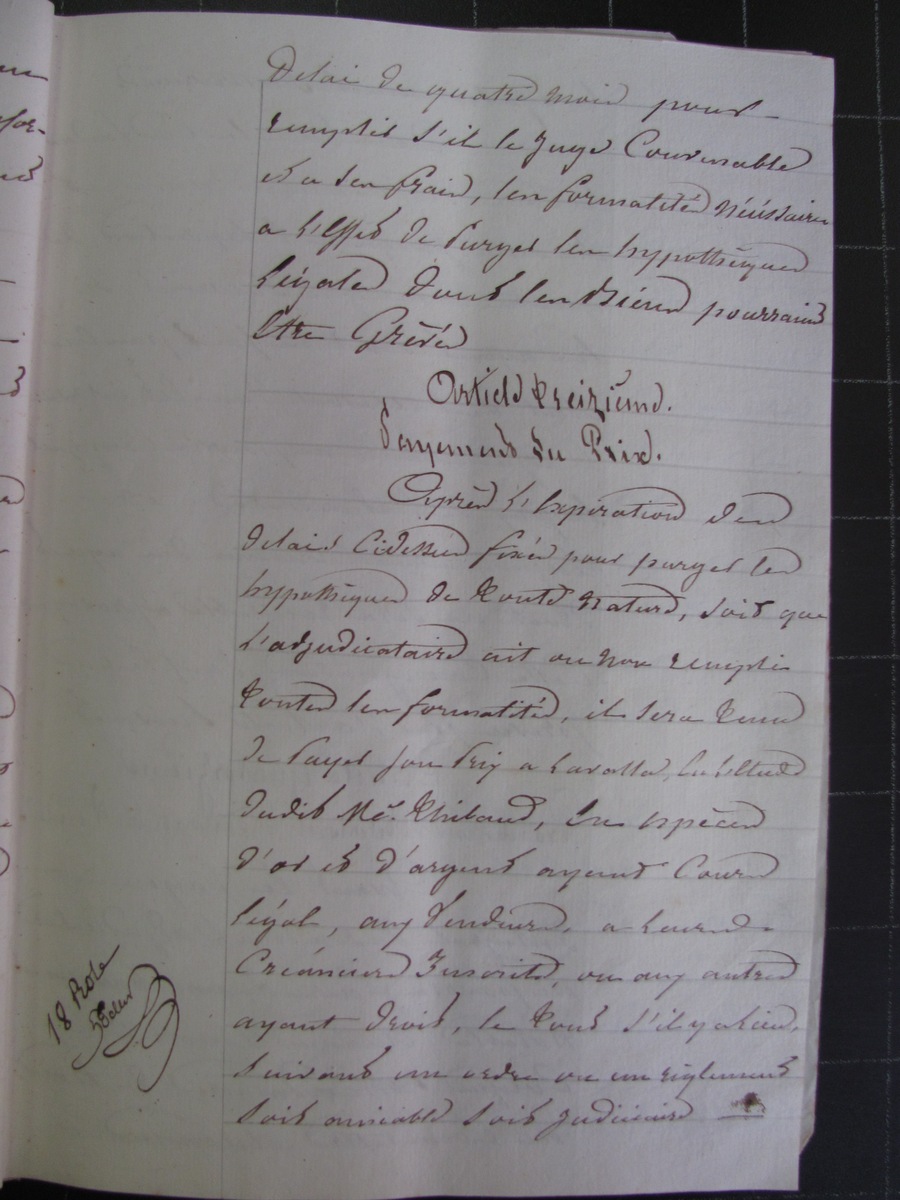 Delai de quatre mois pour
remplir s'il le juge Convenable
et a ses frais, les formalités nécéssaires
a l'effet de Purger les hypothèques
légales dont les Biens pourraient
Etre Grévés
Article treizième.
Payement du Prix.
Après l'Expiration des
delais Cidessus fixés pour purger les
hypothèques de toute nature, soit que
l'adjudicataire ait ou non rempli
toutes les formalités, il sera tenu
de Payer son Prix a Laválla, En l'Etude
dudit Me. Thibaud, En espèces
d'or et d'argent ayant Cours
légal, aux Vendeurs, a leurs
Créanciers Inscrits, ou aux autres
ayant droit, le tout s'il y a lieu,
suivant un ordre ou un réglement
soit amiable soit judiciaire
18 Role